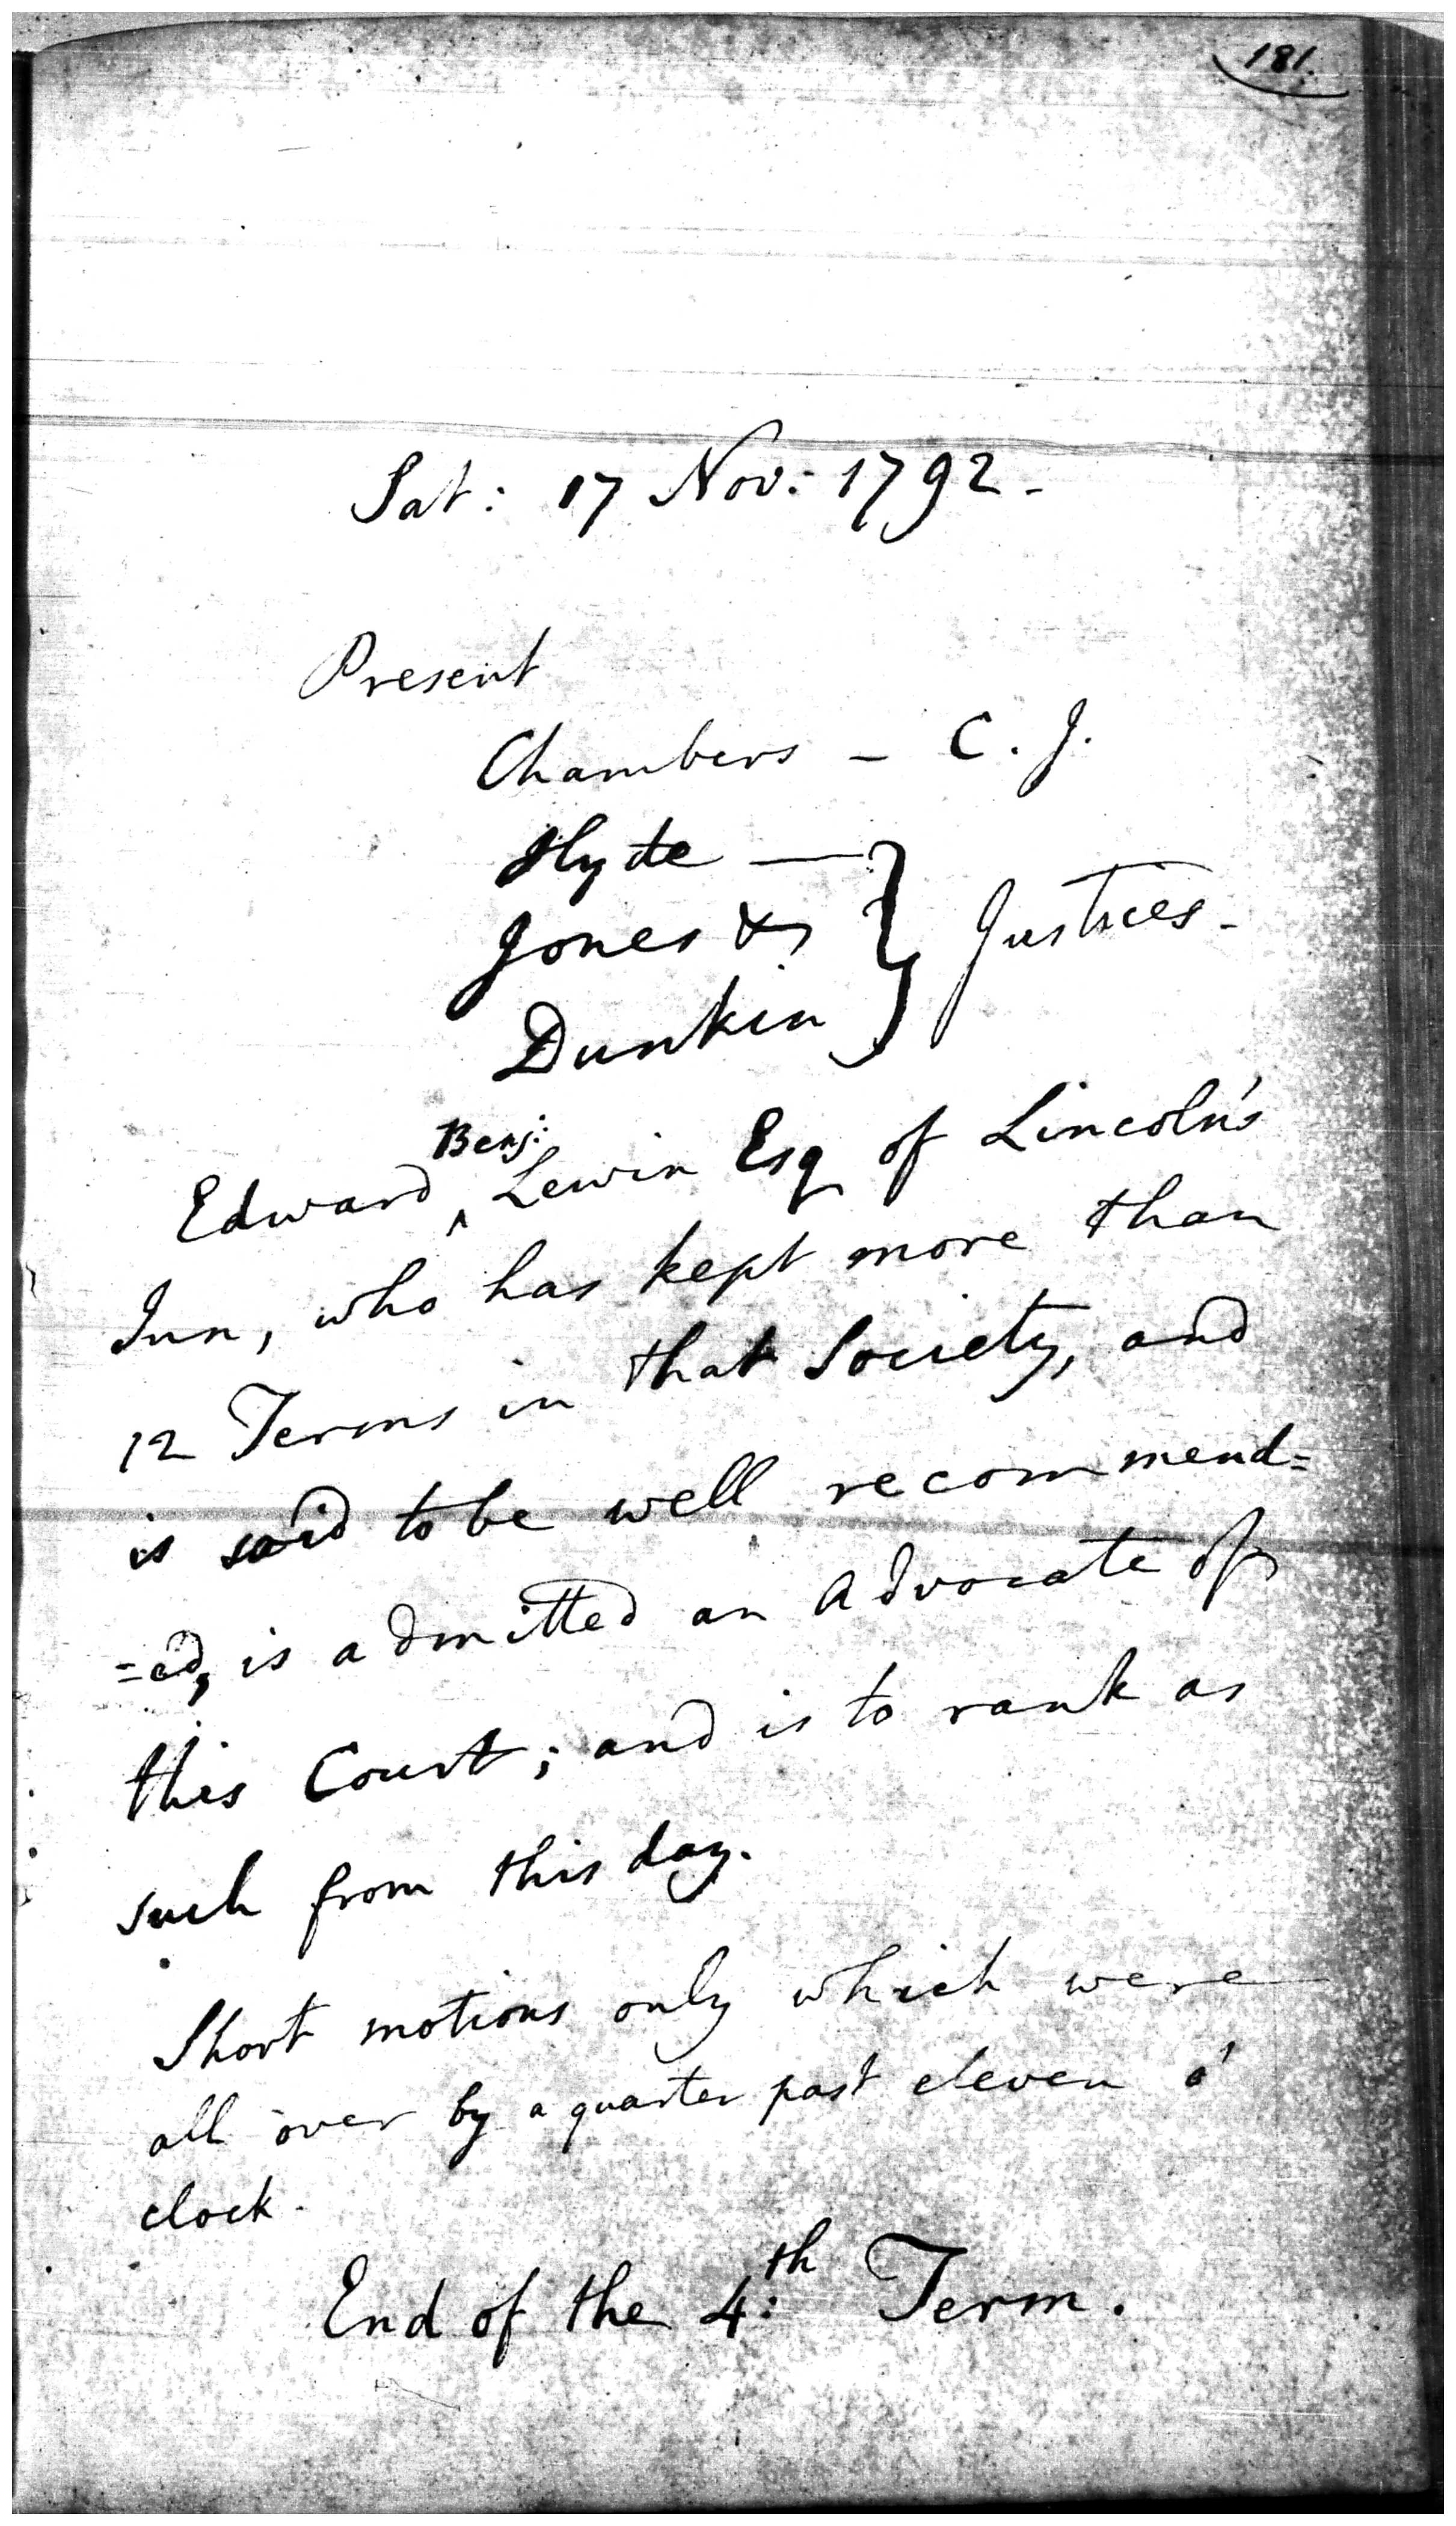 181.
Sat: 17 Nov: 1792 -
Present
Chambers - C. J.
Hyde —
Jones &
Dunkin } Justices -
Benj:
Edward ^ Lewin Esq of Lincoln's
Inn, who has kept more than
12 Terms in that Society, and
is said to be well recommend=
=ed, is admitted an Advocate of
this Court; and is to rank as
such from this day.
Short motions only which were
all over by a quarter past eleven o'
clock -
End of the 4:th Term.